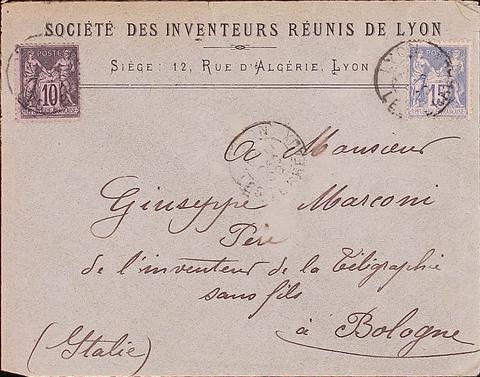 SOCIÉTÉ DES INVENTEURS RÉUNIS DE LYON
SIÈGE: 12, RUE D'ALGÉRIE, LYON
POSTE
10
POSTE
15
LYON
LES TERREAUX
A Monsieur
Giuseppe Marconi
Père
de l'inventeur de la Téligraphie
sans fils
à Bologne
(Italie)